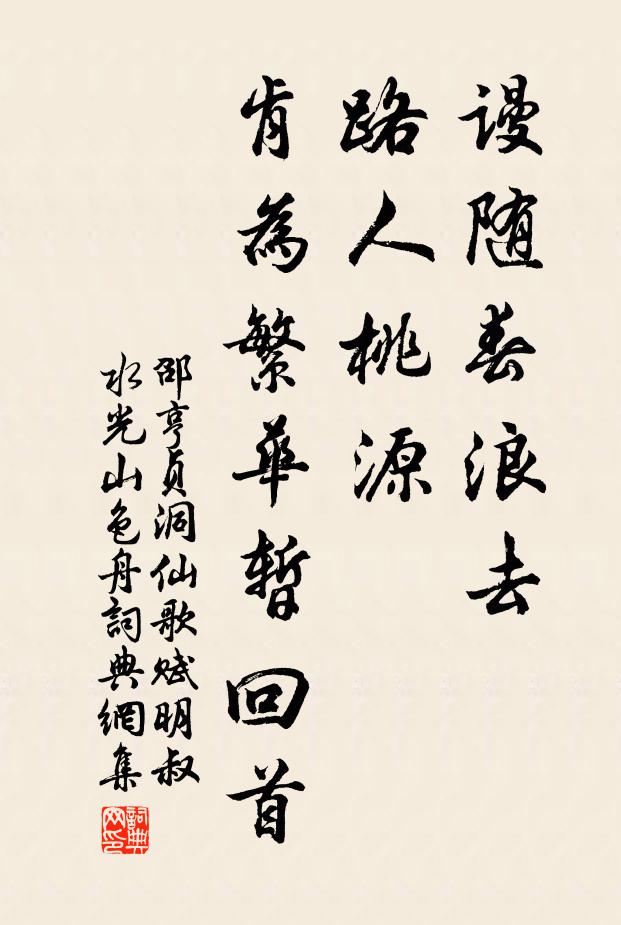 谩随春浪去
路人桃源
肯為繁華暫回首
邵亨貞洞仙歌賦明叔
水光山色舟詞典網集
詞典网印